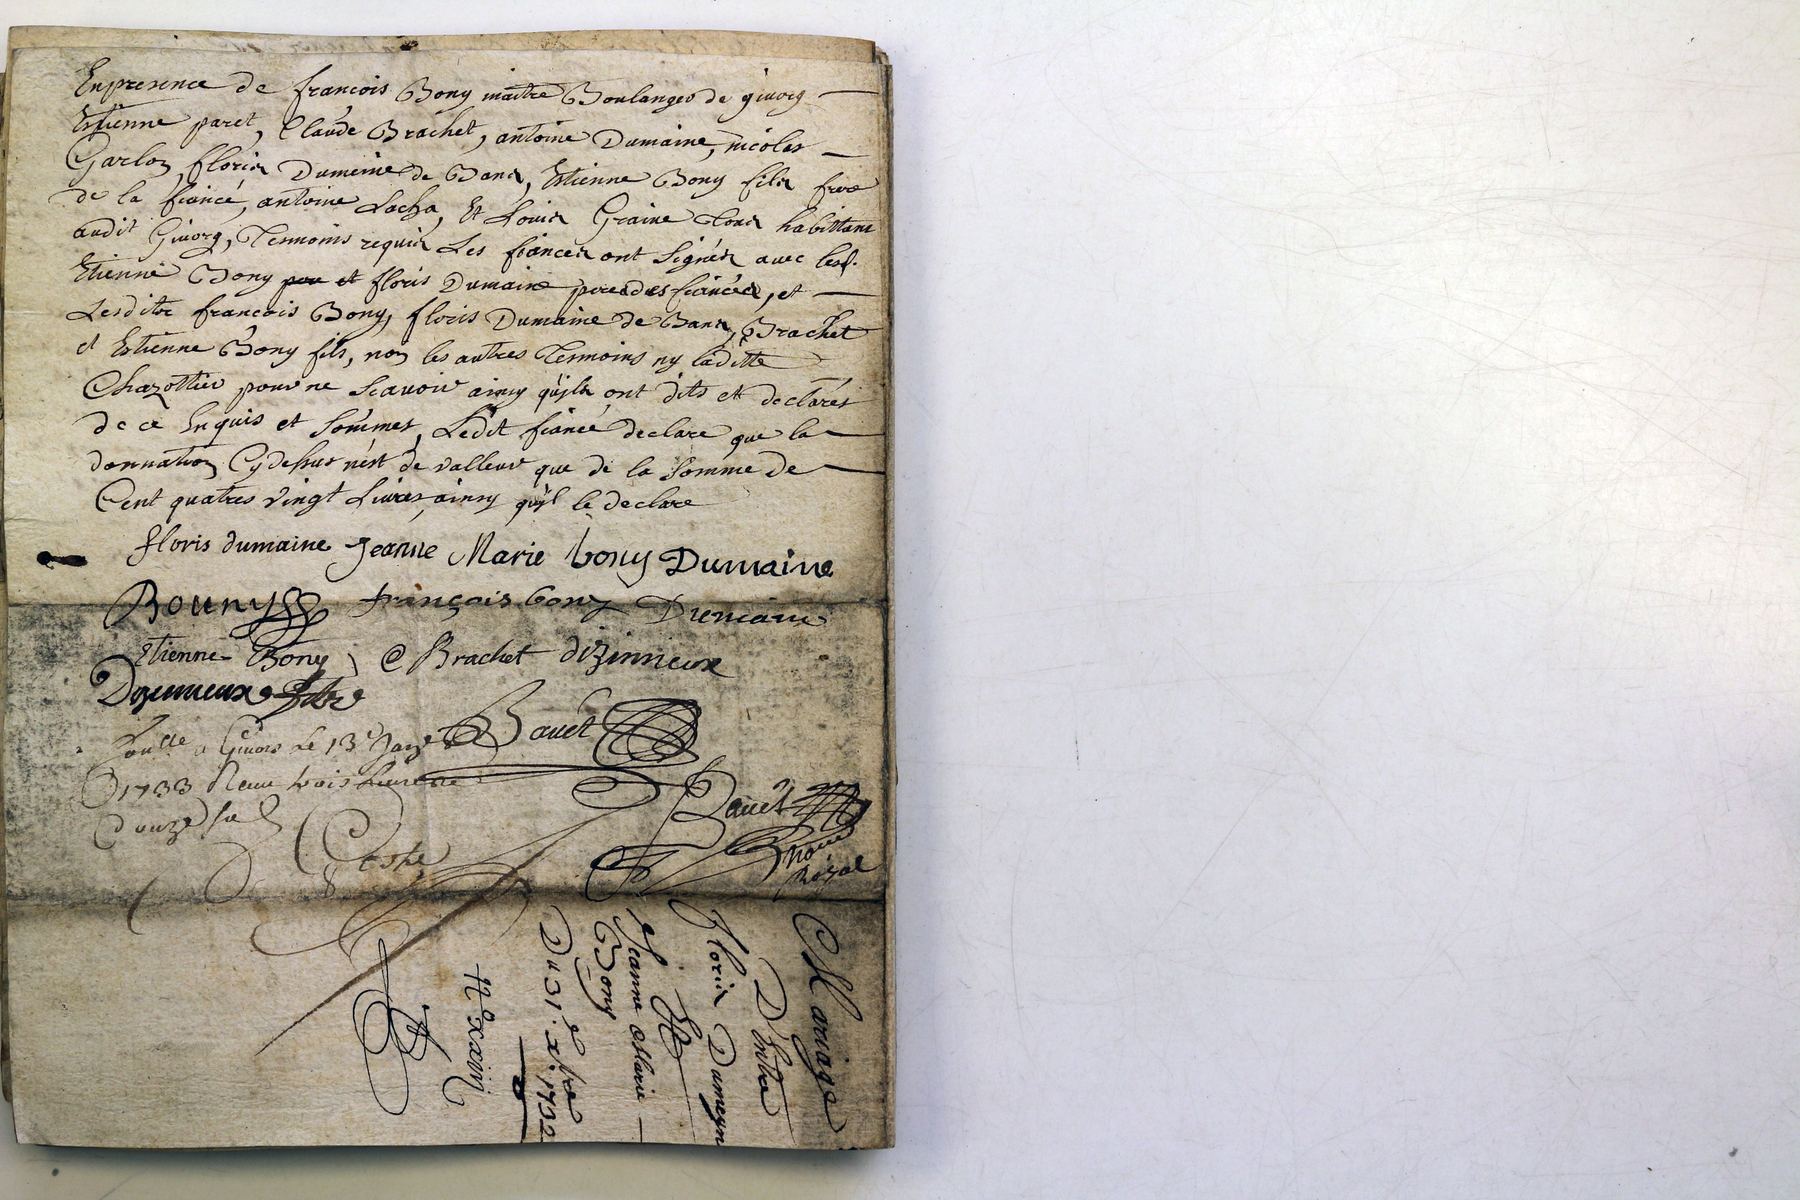 En presence de francois Bony maitre Boulanger de givorg
Estienne paret, Claude Brachet, antoine Dumaine, nicolas
Garlon, floris Dumeine de Bans, Estienne Bony fils frere
de la fiancé, antoine Lacha, Et Louis Graine tous habittans
audit Givorg, Temoins requis Les fiances ont signés avec lesd.
Etienne Bony pere et floris Dumaine peres des fiancés, et
Lesdits francois Bony, floris Dumaine de Bans, Brachet
et Estienne Bony fils, non les autres Temoins ny laditte
Chazottier pour ne scavoir ainsy quils ont dits et declarés
de ce Enquis et sommes, Ledit fiancé declare que la
donnation Cydessus n'est de valleur que de la somme de
Cent quatres vingt Livres, ainsy quil le declare
floris dumaine Jeanne Marie bony Dumaine
Bouny françois bony Dumaine
Etienne Bony C Brachet dizimieux
Dizimieux
Bavet
a Givors Le 13e Janv
1733 Receu trois Livres
douze sol
Bavet
Noire
Royal
Mariage
D'Entre
Floris Dumeyn
Et
Jeanne Marie
Bony
Du 31. xbre 1732